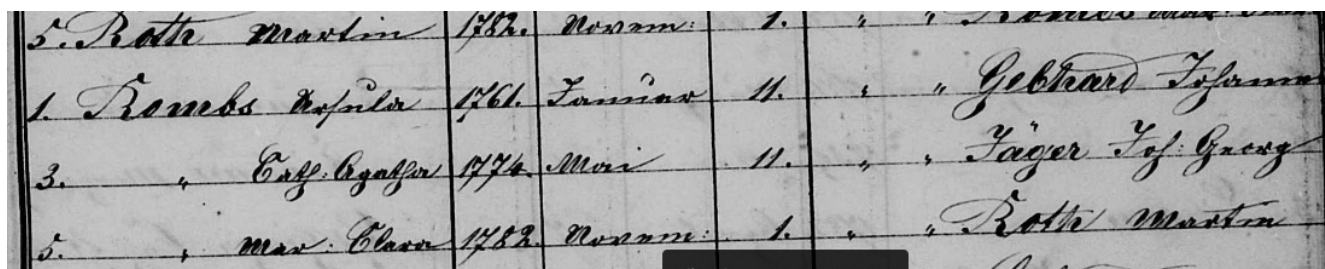 5. Roth Martin 1782. Novem: 1. " "
1. Rombs Ursula 1761. Januar 11. " " Gebhard Johannes
3. " Cath: Agatha 1774. Mai 11. " " Jäger Joh: Georg
5. " Mar: Clara 1782. Novem: 1. " " Roth Martin